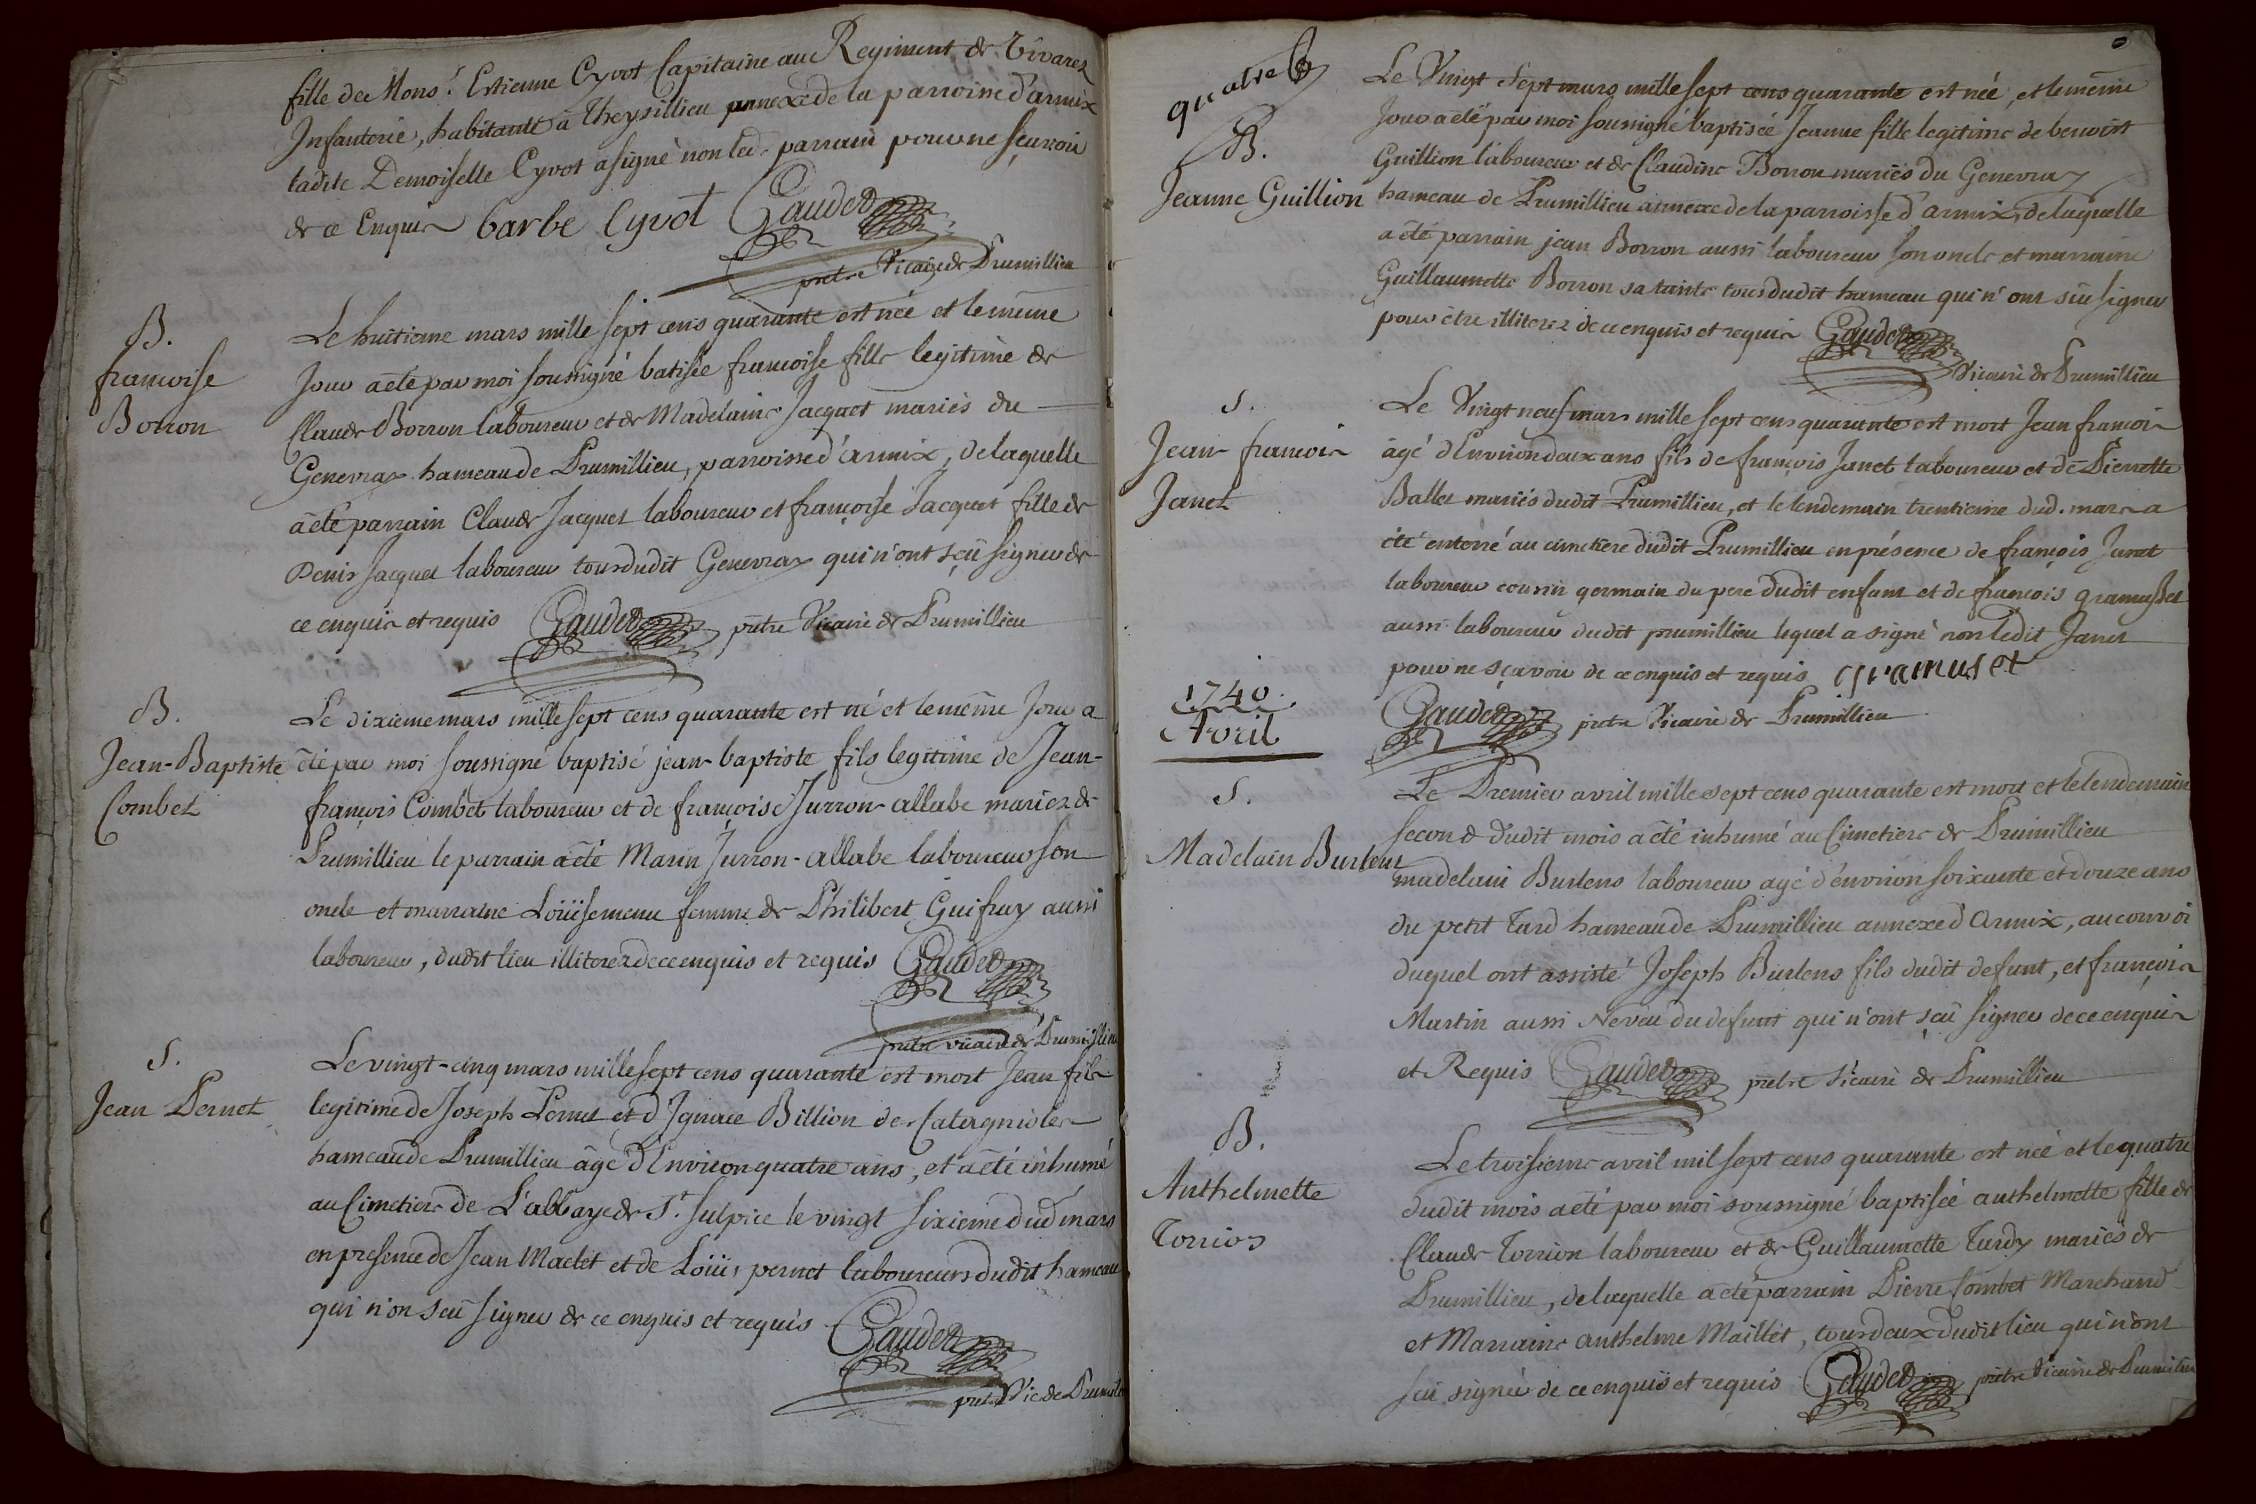 fille de Mons.r Estienne Cyvot Capitaine au Regiment de Vivarez
Infanterie, habitante a Theysillieu annexe de la parroisse d'armix
ladite Demoiselle Cyvot a signé non led. parrain pour ne sçavoir
de ce Enquis barbe Cyvot Gaudet
pretre Vicaire de Prumillieu
B.
francoise
Borron
Le huitieme mars mille sept cens quarante est née et le même
Jour a été par moi soussigné batisée francoise fille legitime de
Claude Borron laboureur et de Madelaine Jacquet mariés du
Genevray hameau de Prumillieu, parroisse d'armix, de laquelle
a été parrain Claude Jacquet laboureur et françoise Jacquet fille de
Denis Jacquet laboureur tous dudit Genevray qui n'ont sçû signer de
ce enquis et requis Gaudet pretre Vicaire de Prumillieu
B.
Jean-Baptiste
Combet
Le dixieme mars mille sept cens quarante est né et le même Jour a
été par moi soussigné baptisé jean-baptiste fils legitime de Jean-
françois Combet laboureur et de françoise Jurron-allabe mariez de
Prumillieu le parrain a été Marin Jurron-allabe laboureur son
oncle et marraine femme de Philibert Guifray aussi
laboureur, dudit lieu illiterez de ce enquis et requis Gaudet
pretre vicaire de Prumillieu
S.
Jean Pernet
Le vingt-cinq mars mille sept cens quarante est mort Jean fils
legitime de Joseph Pernet et d'Ignace Billion de Catagnioles
hameau de Prumillieu âgé d'Environ quatre ans, et a été inhumé
au Cimetiere de L'abbaye de St. sulpice le vingt sixieme dud. mars
en presence de Jean Maclet et de Loüis pernet laboureurs dudit hameau
qui n'on sçû signer de ce enquis et requis Gaudet
pretre Vic de Prumil
quatre
B.
Jeanne Guillion
Le Vingt Sept mars mille sept cens quarante est née, et le même
Jour a été par moi soussigné baptisée Jeanne fille legitime de benoist
Guillion laboureur et de Claudine Borron mariés du Genevray
hameau de Prumillieu annexe de la parroisse d'armix, de laquelle
a été parrain jean Borron aussi laboureur son oncle et marraine
Guillaumette Borron sa tante tous dudit hameau qui n'ont sçu signer
pour être illiterez de ce enquis et requis Gaudet
Vicaire de Prumillieu
S.
Jean francois
Janet
Le Vingt neuf mars mille sept cens quarante est mort Jean francois
âgé d'Environ deux ans fils de françois Janet laboureur et de Pierrette
Ballet mariés dudit Prumillieu, et le lendemain trentieme dud. mars a
été enterré au cimetiere dudit Prumillieu en présence de françois Janet
laboureur cousin germain du pere dudit enfant et de francois gramusset
aussi laboureur dudit prumillieu lequel a signé non ledit Janet
pour ne sçavoir de ce enquis et requis gramuset
Gaudet pretre Vicaire de Prumillieu
1740.
Avril
S.
Madelain Burlens
Le Premier avril mille sept cens quarante est mort et le lendemain
second dudit mois a été inhumé au Cimetiere de Prumillieu
madelain Burlens laboureur agé d'environ soixante et douze ans
du petit Turd hameau de Prumillieu annexe d'Armix, au convoi
duquel ont assisté Joseph Burlens fils dudit defunt, et françois
Martin aussi Neveu du defunt qui n'ont sçû signer de ce enquis
et Requis Gaudet pretre Vicaire de Prumillieu
B.
Anthelmette
Torrion
Le troisieme avril mil sept cens quarante est née et le quatre
dudit mois a été par moi soussigné baptisée anthelmette fille de
Claude Torrion laboureur et de Guillaumette Turdy mariés de
Prumillieu, de laquelle a été parrain Pierre Combet Marchand
et Marraine anthelme Maillet, tous deux dudit lieu qui n'ont
sçû signer de ce enquis et requis Gaudet pretre Vicaire de Prumillieu